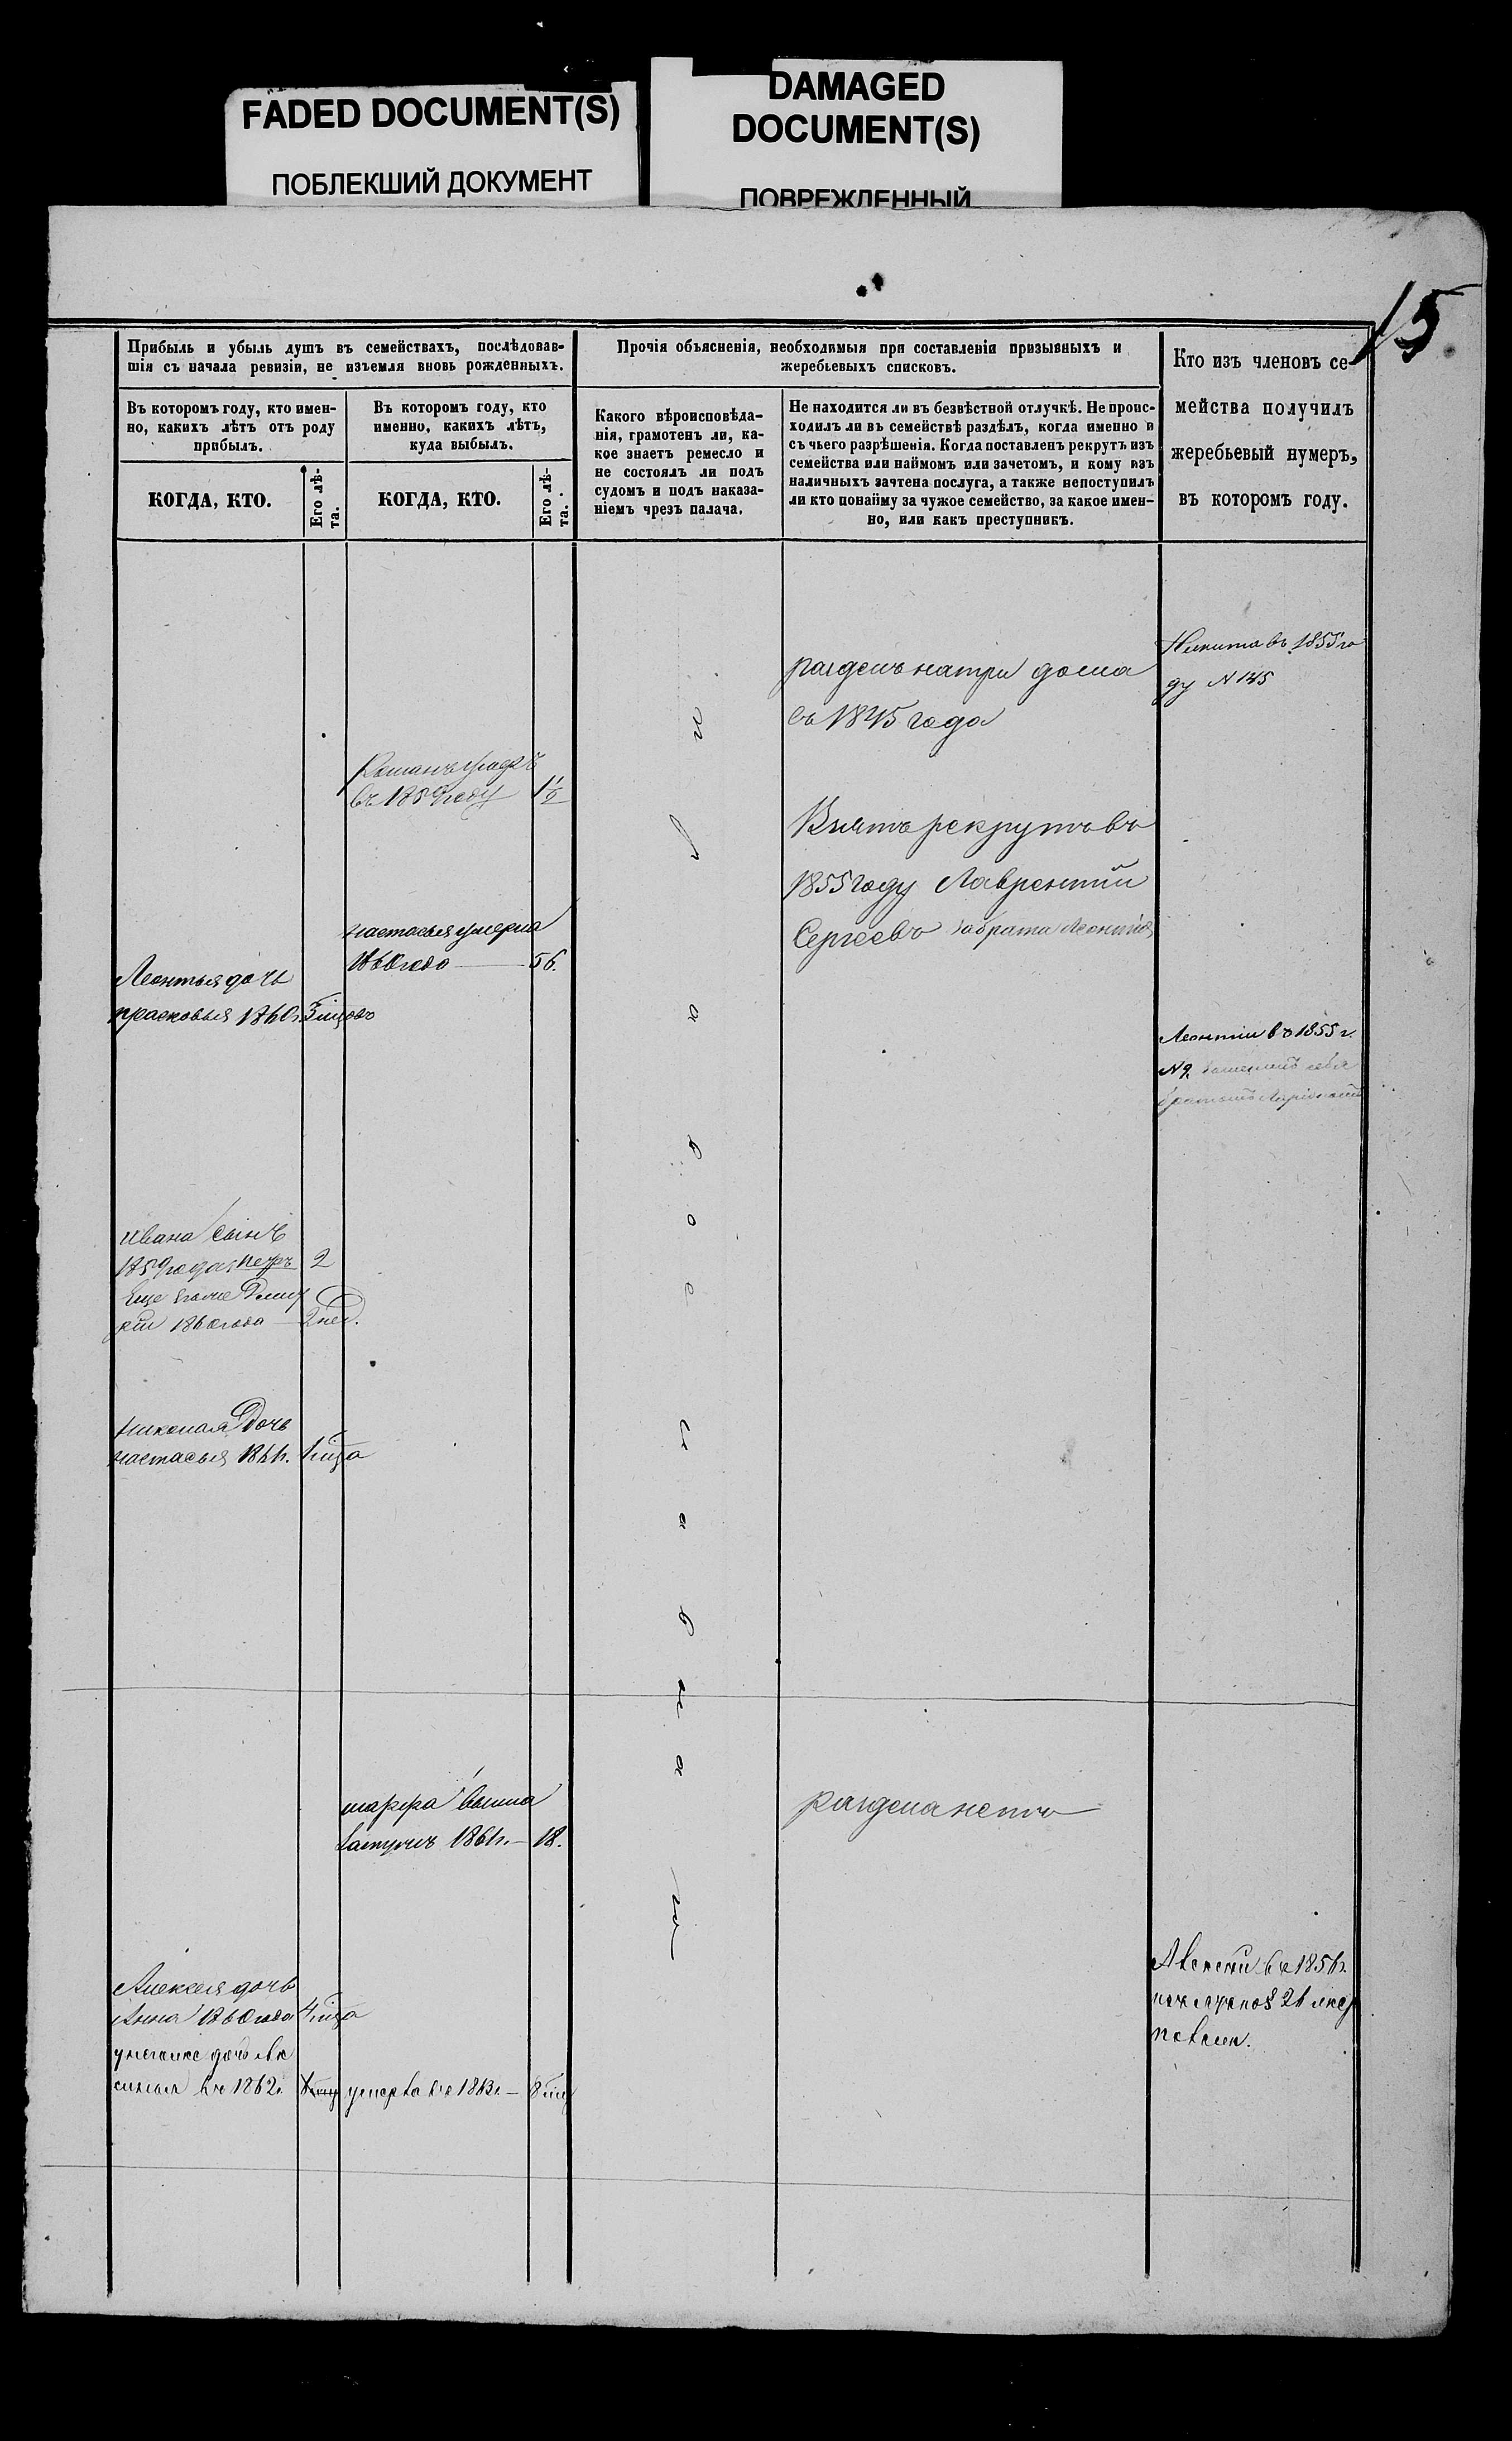 FADED DOCUMENT(S)
ПОБЛЕКШИЙ ДОКУМЕНТ
DAMAGED
DOCUMENT(S)
ПОВРЕЖДЕННЫЙ
15
Прибыль и убыль душъ въ семействахъ, послѣдовав-
шія съ начала ревизіи, не изъемля вновь рожденныхъ.
Въ которомъ году, кто имен-
но, какихъ лѣтъ отъ роду
прибылъ.
КОГДА, КТО.
Его лѣ-
та.
Въ которомъ году, кто
именно, какихъ лѣтъ,
куда выбылъ.
КОГДА, КТО.
Его лѣ-
та.
Прочія объясненія, необходимыя при составленіи призывныхъ и
жеребьевыхъ списковъ.
Какого вѣроисповѣда-
нія, грамотенъ ли, ка-
кое знаетъ ремесло и
не состоялъ ли подъ
судомъ и подъ наказа-
ніемъ чрезъ палача.
Не находится ли въ безвѣстной отлучкѣ. Не проис-
ходилъ ли въ семействѣ раздѣлъ, когда именно и
съ чьего разрѣшенія. Когда поставленъ рекрутъ изъ
семейства или наймомъ или зачетомъ, и кому изъ
наличныхъ зачтена послуга, а также непоступилъ
ли кто понайму за чужое семейство, за какое имен-
но, или какъ преступникъ.
Кто изъ членовъ се-
мейства получилъ
жеребьевый нумеръ,
въ которомъ году.
Никита въ 1855 го
ду N 145
разделъ натри дома
въ 1845 года
Романъ умеръ
въ 1859 году 1½
Взятъ рекрутъ въ
1855 году Лаврентий
Сергеевъ за брата Леонтія
настасья умерла
1860 года 56.
Леонтья дочь
прасковья 1860 г. 3
Леонтий въ 1855 г.
N 9.
Ивана сынъ
1859 года Петръ 2
Еще Дмит
рій 1860 года 2 нед.
Николая Дочь
настасья 1861 г.
православнаго
марфа вышла
взамужъ 1861 г. 18.
раздела нетъ
Алексея дочь
Анна 1860 года
у негоже дочь Ак
синья въ 1862 г.
умерла въ 1863 г. 8
Алексей въ 1856 г.